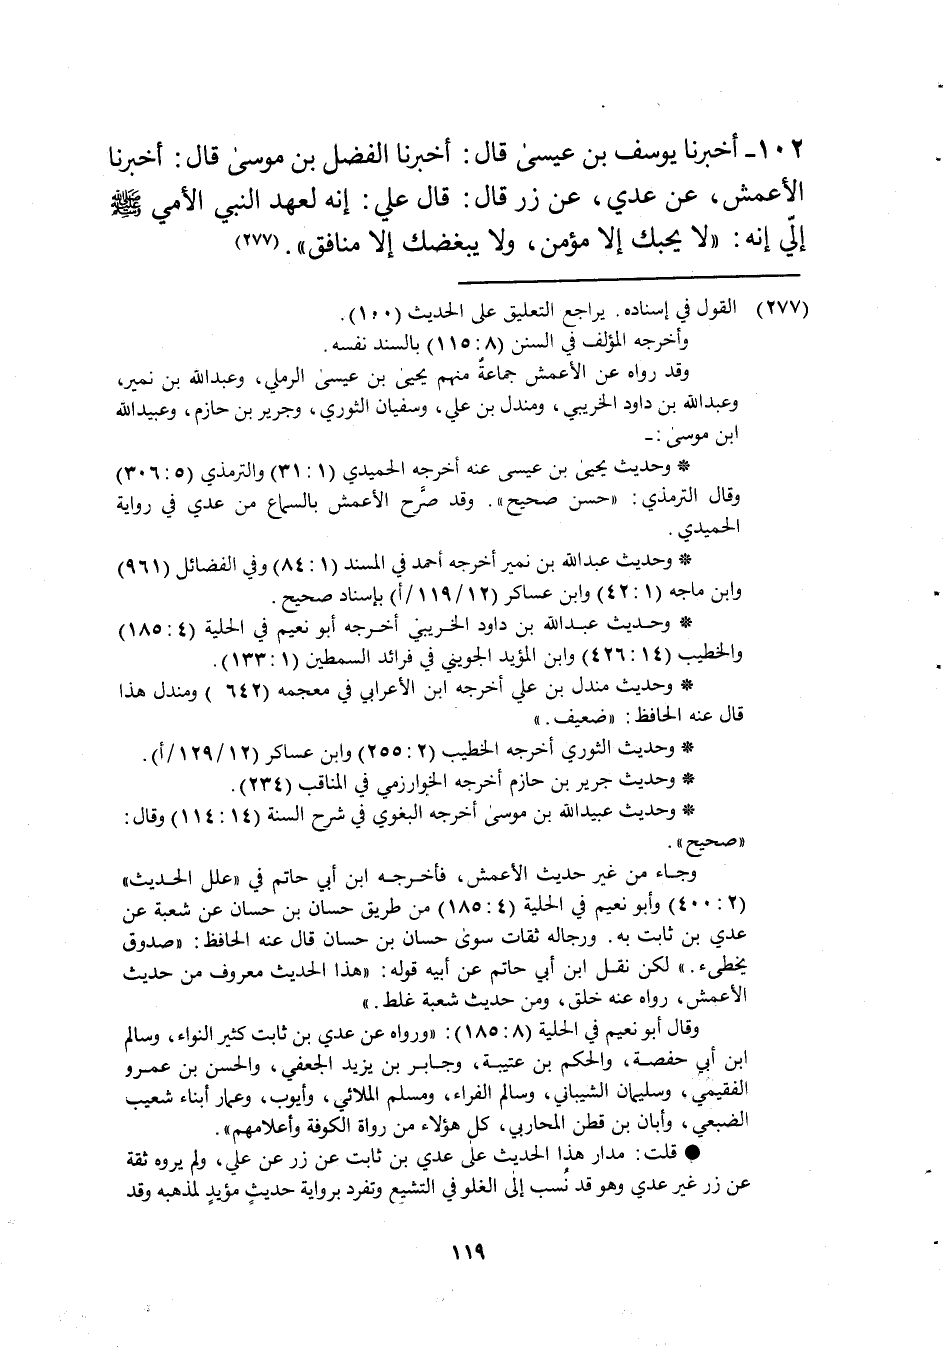 ١٠٢ـ أخبرنا يوسف بن عيسىٰ قال: أخبرنا الفضل بن موسىٰ قال: أخبرنا
الأعمش، عن عدي، عن زر قال: قال علي: إنه لعهد النبي الأمي ﷺ
إليّ إنه: «لا يحبك إلا مؤمن، ولا يبغضك إلا منافق». (٢٧٧)
(٢٧٧) القول في إسناده. يراجع التعليق على الحديث (١٠٠).
وأخرجه المؤلف في السنن (٨: ١١٥) بالسند نفسه.
وقد رواه عن الأعمش جماعةٌ منهم يحيىٰ بن عيسىٰ الرملي، وعبدالله بن نمير،
وعبدالله بن داود الخريبي، ومندل بن علي، وسفيان الثوري، وجرير بن حازم، وعبيدالله
ابن موسىٰ :ـ
* وحديث يحيىٰ بن عيسى عنه أخرجه الحميدي (١: ٣١) والترمذي (٥: ٣٠٦)
وقال الترمذي: «حسن صحيح». وقد صرَّح الأعمش بالسماع من عدي في رواية
الحميدي.
* وحديث عبدالله بن نمير أخرجه أحمد في المسند (١: ٨٤) وفي الفضائل (٩٦١)
وابن ماجه (١: ٤٢) وابن عساكر (١٢/ ١١٩/أ) بإسناد صحيح.
* وحديث عبدالله بن داود الخريبي أخرجه أبو نعيم في الحلية (٤: ١٨٥)
والخطيب (١٤: ٤٢٦) وابن المؤيد الجويني في فرائد السمطين (١: ١٣٣).
* وحديث مندل بن علي أخرجه ابن الأعرابي في معجمه (٦٤٢ ) ومندل هذا
قال عنه الحافظ: «ضعيف.»
* وحديث الثوري أخرجه الخطيب (٢: ٢٥٥) وابن عساكر (١٢/ ١٢٩/أ).
* وحديث جرير بن حازم أخرجه الخوارزمي في المناقب (٢٣٤).
* وحديث عبيدالله بن موسىٰ أخرجه البغوي في شرح السنة (١٤: ١١٤) وقال:
«صحيح».
وجاء من غير حديث الأعمش، فأخرجه ابن أبي حاتم في «علل الحديث»
(٢: ٤٠٠) وأبو نعيم في الحلية (٤: ١٨٥) من طريق حسان بن حسان عن شعبة عن
عدي بن ثابت به. ورجاله ثقات سوىٰ حسان بن حسان قال عنه الحافظ: «صدوق
يخطىء.» لكن نقل ابن أبي حاتم عن أبيه قوله: «هذا الحديث معروف من حديث
الأعمش، رواه عنه خلق، ومن حديث شعبة غلط.»
وقال أبو نعيم في الحلية (٨: ١٨٥): «ورواه عن عدي بن ثابت كثير النواء، وسالم
ابن أبي حفصة، والحكم بن عتيبة، وجابر بن يزيد الجعفي، والحسن بن عمرو
الفقيمي، وسليمان الشيباني، وسالم الفراء، ومسلم الملائي، وأيوب، وعمار أبناء شعيب
الضبعي، وأبان بن قطن المحاربي، كل هؤلاء من رواة الكوفة وأعلامهم».
● قلت: مدار هذا الحديث علىٰ عدي بن ثابت عن زر عن علي، ولم يروه ثقة
عن زر غير عدي وهو قد نُسب إلىٰ الغلو في التشيع وتفرد برواية حديثٍ مؤيدٍ لمذهبه وقد
١١٩